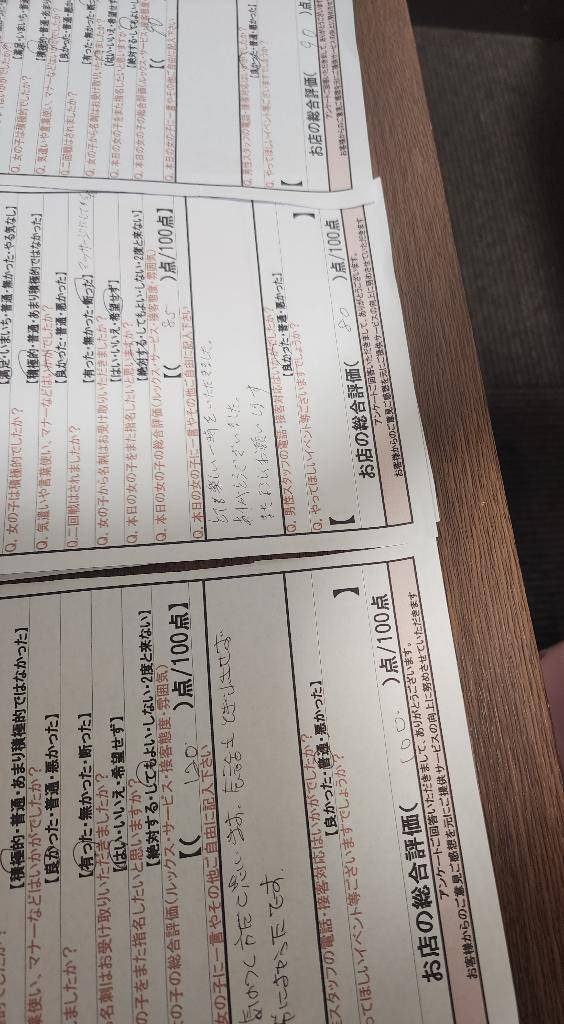 Q. 女の子は積極的でしたか？
【積極的・普通・あまり積極的ではなかった】
Q. 気遣いや言葉使い、マナーなどはいかがでしたか？
【良かった・普通・悪かった】
Q. 二回戦はされましたか？
【有った・無かった・断った】
Q. 女の子から名刺はお受け取りいただきましたか？
【はい・いいえ・希望せず】
Q. 本日の女の子をまた指名したいと思いますか？
【絶対する・してもよい・しない・2度と来ない】
Q. 本日の女の子の総合評価(ルックス・サービス・接客態度・雰囲気)
【(
Q. 本日の女の子に一言やその他ご自由に記入下さい
Q. 男性スタッフの電話・接客対応はいかがでしたか？
【良かった・普通・悪かった】
Q. やってほしいイベント等ございますでしょうか？
【
お店の総合評価( 90 )点
【満足・いまいち・普通・無かった・やる気なし】
Q. 女の子は積極的でしたか？
【積極的・普通・あまり積極的ではなかった】
Q. 気遣いや言葉使い、マナーなどはいかがでしたか？
【良かった・普通・悪かった】
Q. 二回戦はされましたか？
【有った・無かった・断った】
Q. 女の子から名刺はお受け取りいただきましたか？
【はい・いいえ・希望せず】
Q. 本日の女の子をまた指名したいと思いますか？
【絶対する・してもよい・しない・2度と来ない】
Q. 本日の女の子の総合評価(ルックス・サービス・接客態度・雰囲気)
【( 85 )点/100点】
Q. 本日の女の子に一言やその他ご自由に記入下さい
とても楽しい一時をいただきました。
ありがとうございました。
またよろしくお願いします
Q. 男性スタッフの電話・接客対応はいかがでしたか？
【良かった・普通・悪かった】
Q. やってほしいイベント等ございますでしょうか？
【 】
お店の総合評価( 80 )点/100点
アンケートご回答いただきまして、ありがとうございます。
お客様からのご意見ご感想を元にご提供サービスの向上に努めさせていただきます
【積極的・普通・あまり積極的ではなかった】
葉使い、マナーなどはいかがでしたか？
【良かった・普通・悪かった】
ましたか？
【有った・無かった・断った】
ら名刺はお受け取りいただきましたか？
【はい・いいえ・希望せず】
の子をまた指名したいと思いますか？
【絶対する・してもよい・しない・2度と来ない】
の子の総合評価(ルックス・サービス・接客態度・雰囲気)
【( 120 )点/100点】
女の子に一言やその他ご自由に記入下さい
スタッフの電話・接客対応はいかがでしたか？
【良かった・普通・悪かった】
ってほしいイベント等ございますでしょうか？
】
お店の総合評価( 100. )点/100点
アンケートご回答いただきまして、ありがとうございます。
お客様からのご意見ご感想を元にご提供サービスの向上に努めさせていただきます